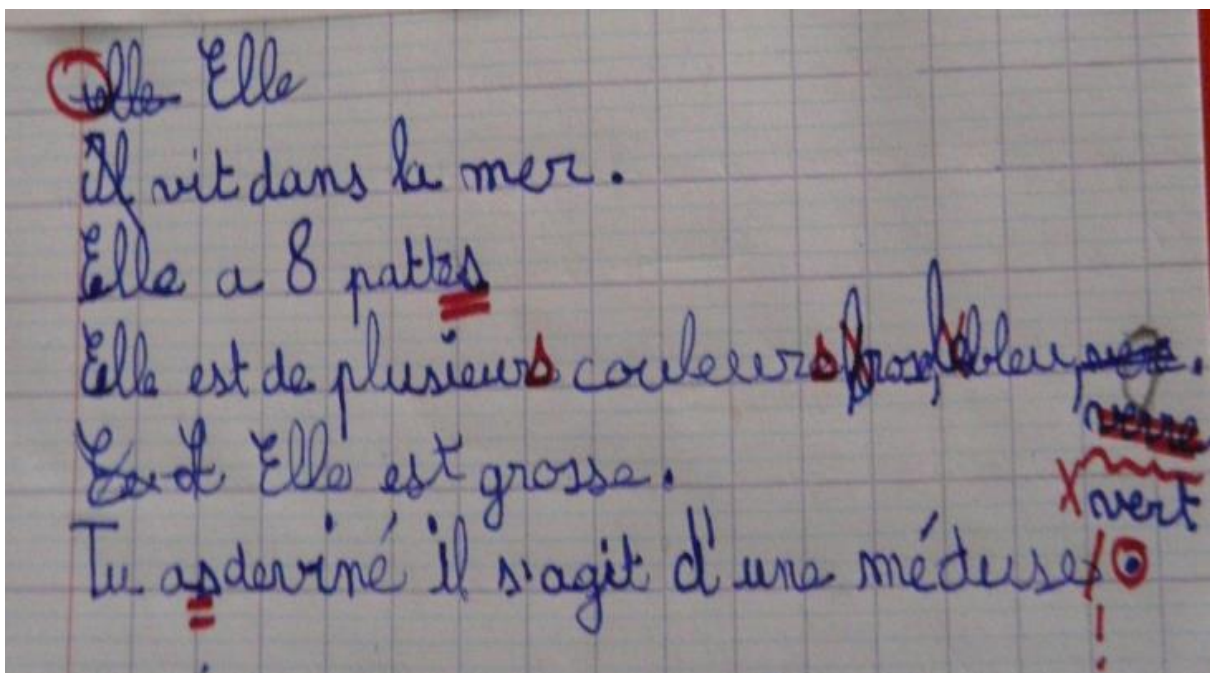 elle Elle
Il vit dans la mer.
Elle a 8 pattes
Elle est de plusieurs couleurs (rose, bleu, .
verre
Elle est grosse.
vert
Tu as deviné il s'agit d'une méduse.